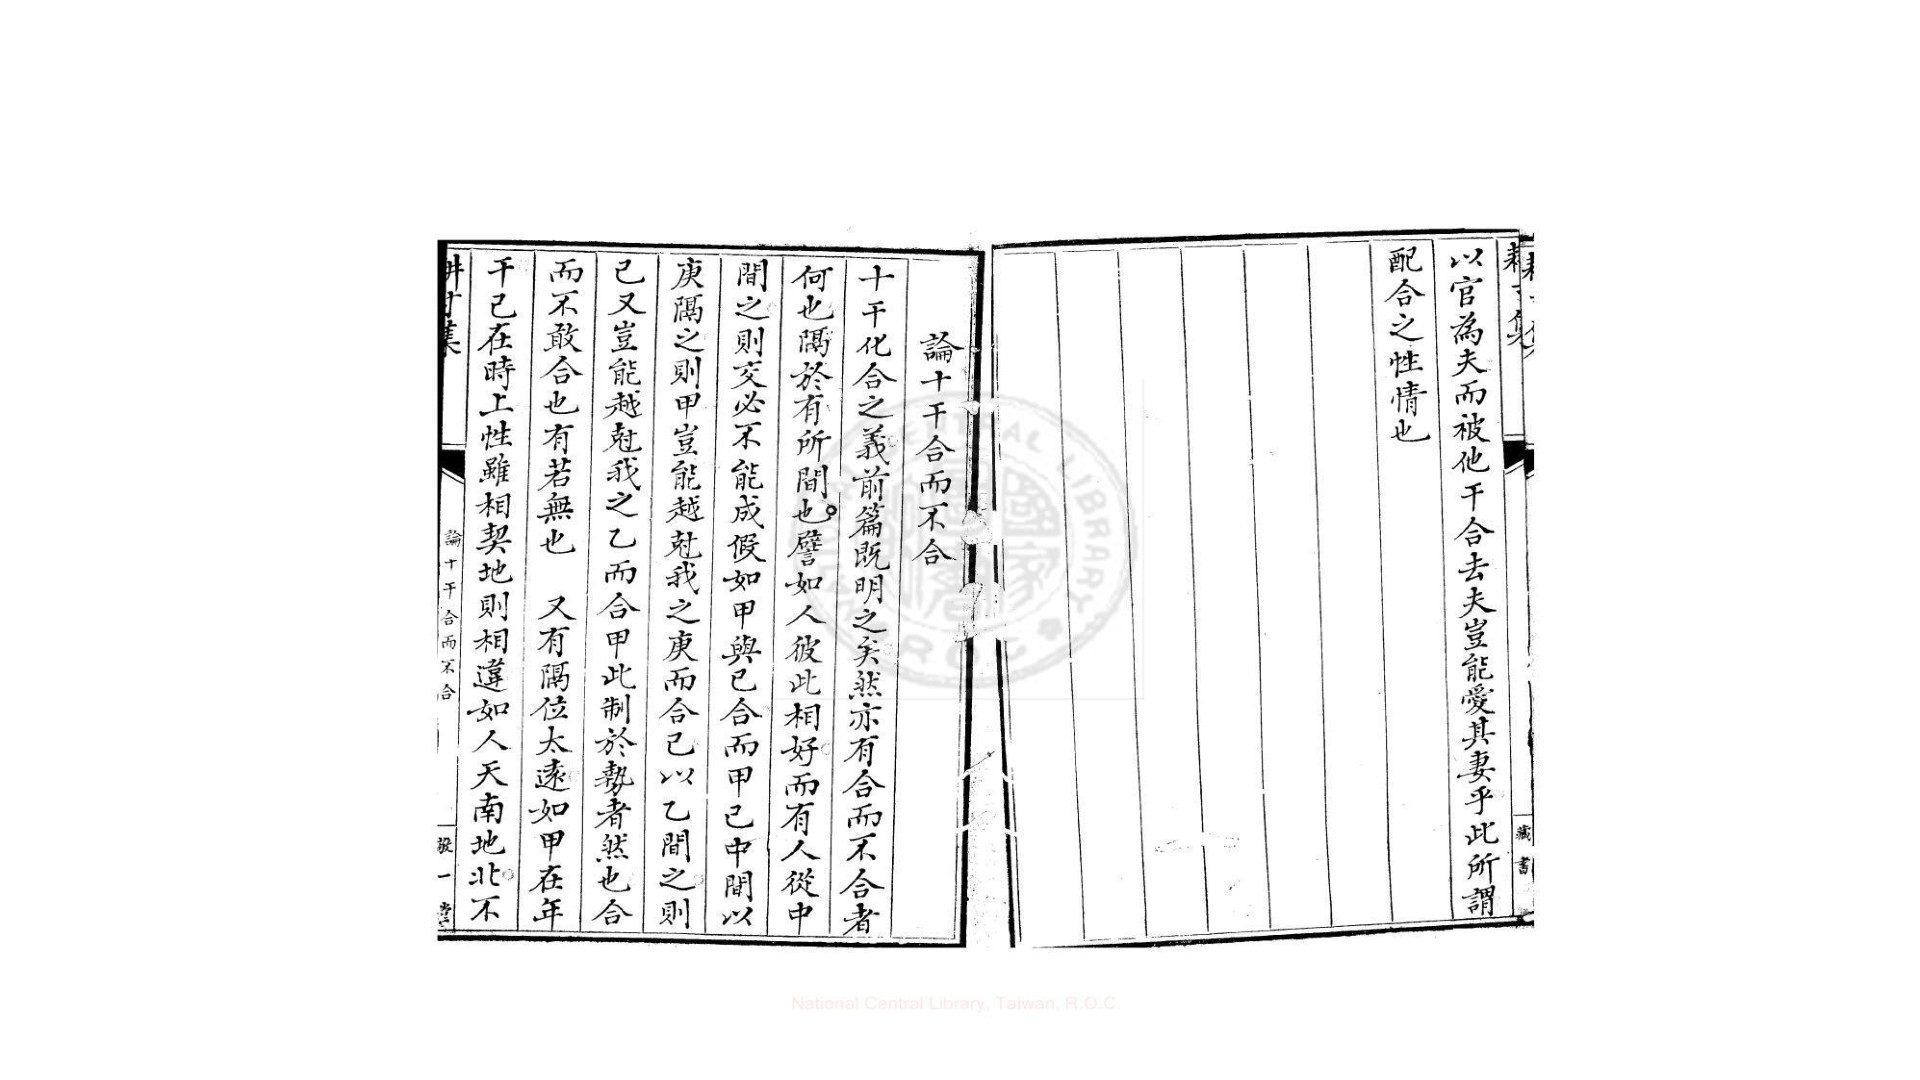 以官為夫而被他干合去夫豈能愛其妻乎此所謂
配合之性情也
藏書
論十干合而不合
十干化合之義前篇既明之矣然亦有合而不合者
何也隔於有所間也譬如人彼此相好而有人從中
間之則交必不能成假如甲與己合而甲己中間以
庚隔之則甲豈能越尅我之庚而合己以乙間之則
己又豈能越尅我之乙而合甲此制於勢者然也合
而不敢合也有若無也 又有隔位太遠如甲在年
干己在時上性雖相契地則相違如人天南地北不
論十干合而不合
NATIONAL CENTRAL LIBRARY R.O.C.
National Central Library, Taiwan, R.O.C.